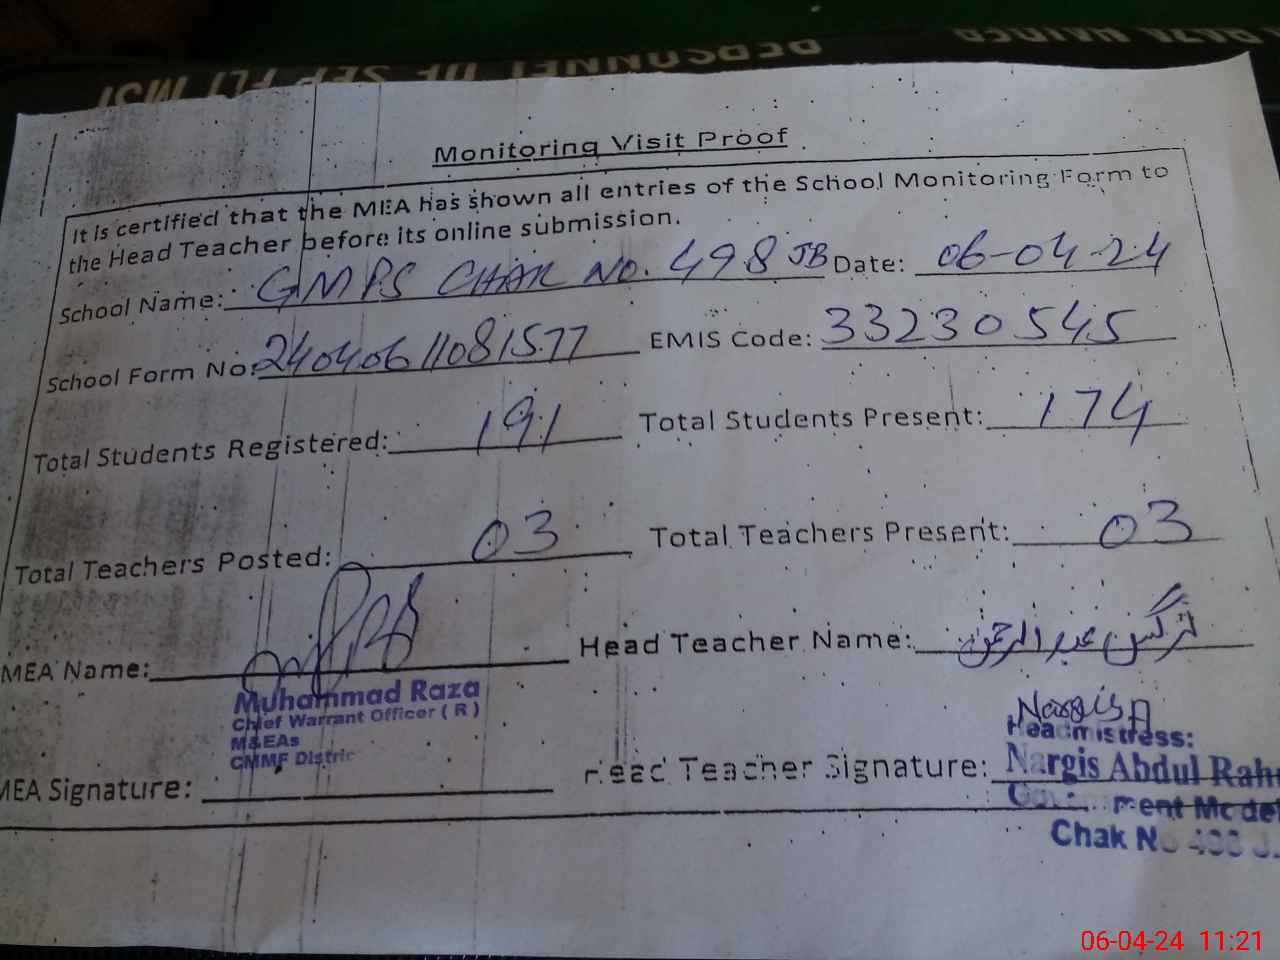 Monitoring Visit Proof
It is certified that the MEA has shown all entries of the School Monitoring Form to
the Head Teacher before its online submission.
School Name: GMPS CHAK No. 498 JB Date: 06-04-24
School Form No: 24040611081577 EMIS Code: 33230545
Total Students Registered: 191 Total Students Present: 174
Total Teachers Posted: 03 Total Teachers Present: 03
MEA Name: Head Teacher Name: نرگس عبدالرحمن
Muhammad Raza
Chief Warrant Officer ( R )
M&EAs
CMMF Distric
Nargis A
Headmistress:
MEA Signature: Head Teacher Signature: Nargis Abdul Rah
Government Model
Chak No
06-04-24 11:21